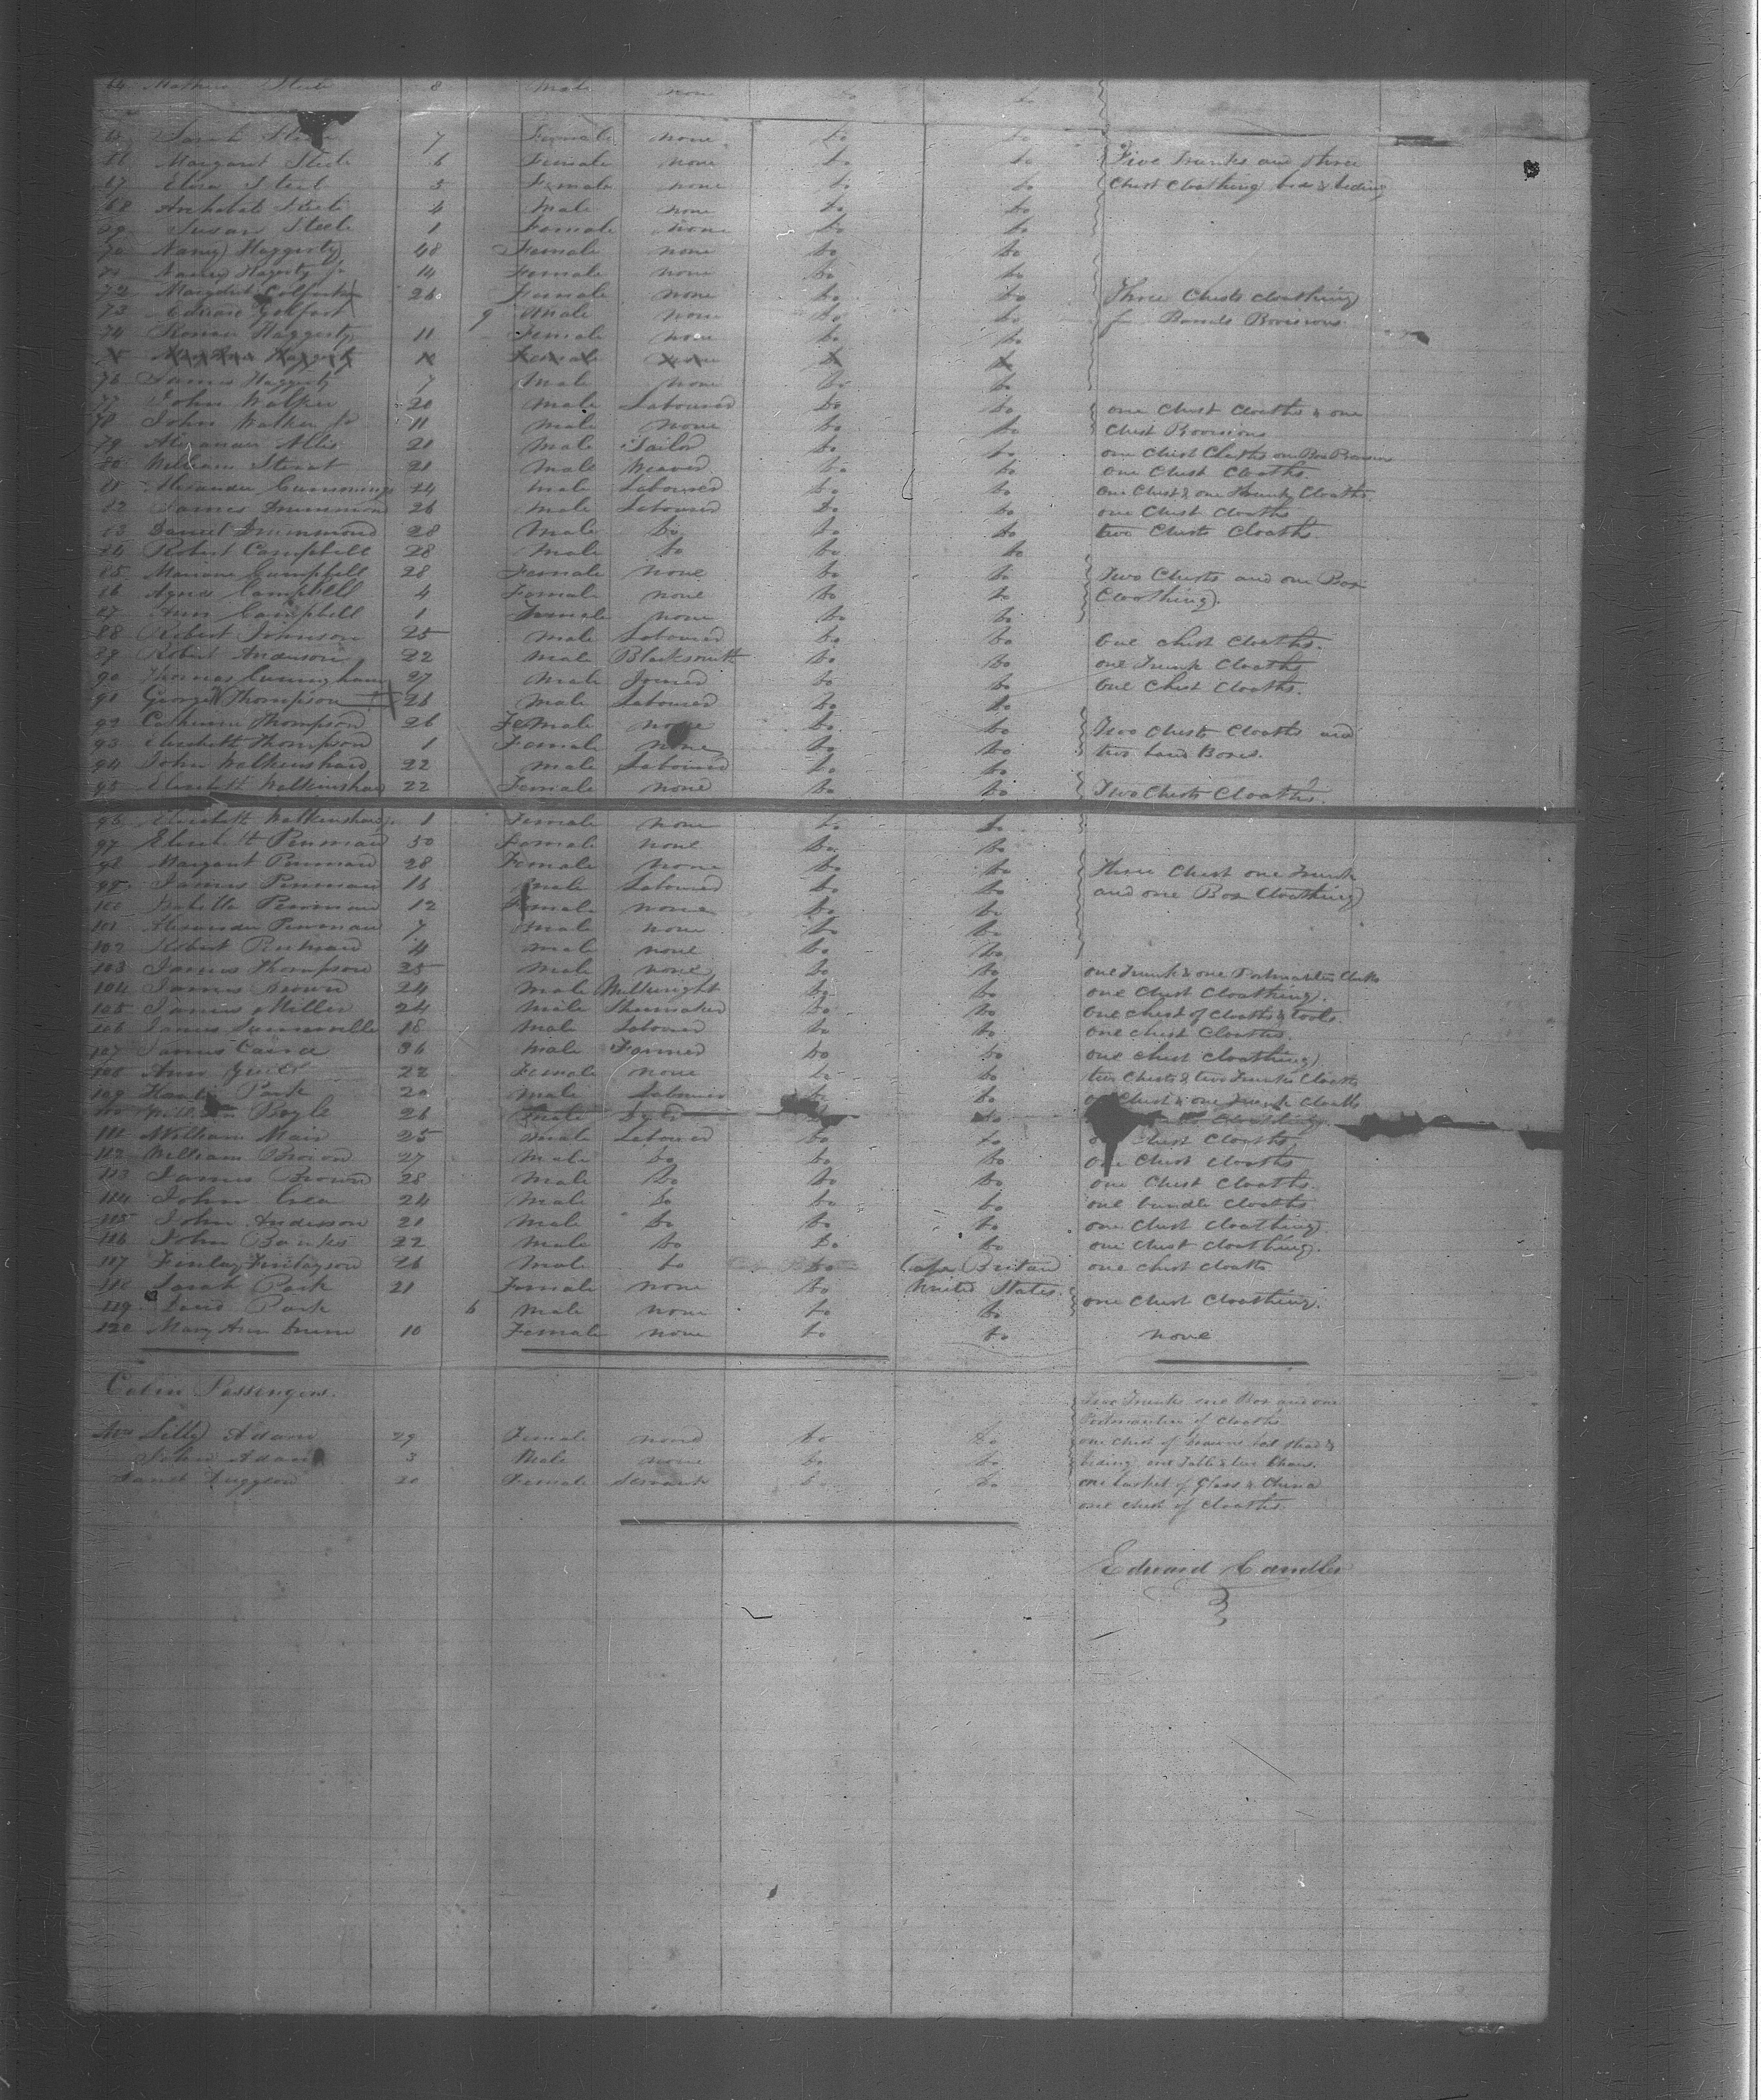 64 Mathew Steele 8 Male none Do Do
65 Sarah Steele 7 Female none Do Do
66 Margaret Steele 6 Female none Do Do Five Trunks and three
67 Eliza Steel 5 Female none Do Do Chest Cloathing bed & beding
68 Archibald Steele 4 Male none Do Do
69 Susan Steele 1 Female none Do Do
70 Nancy Haggerty 48 Female none Do Do
71 Nancy Hagerty Jr 14 Female none Do Do
72 Margaret 26 Female none Do Do Three Chests cloathing
73 9 Male none Do Do Provisions
74 Thomas Haggerty 11 Female none Do Do
Haggerty Female none Do Do
76 James Haggerty 7 Male none Do Do
77 John Walker 20 Male Labourer Do Do one Chest Cloaths & one
78 John Walker Jr 11 Male none Do Do Chest Provisions
79 Alexander Allis 21 Male Tailor Do Do one Chest Cloaths one Box Provisions
80 William Stewat 21 Male Weaver Do Do one Chest Cloaths
81 Alexander Cummonings 24 Male Labourer Do Do one Chest & one Trunk Cloaths
82 James Drummond 26 Male Labourer Do Do one Chest Cloaths
83 Daniel Drummond 28 Male Do Do Do two Chests Cloaths
84 Robert Campbell 28 Male Do Do Do
85 Mariane Campbell 28 Female none Do Do Two Chests and one Box
86 Agnes Campbell 4 Female none Do Do Cloathing
87 Ann Campbell 1 Female none Do Do
88 Robert Johnson 25 Male Labourer Do Do One chest Cloaths.
89 Robert Anderson 22 Male Blacksmith Do Do one Trunk Cloaths
90 Thomas Cuningham 27 Male Joiner Do Do One Chest Cloaths.
91 George Thompson 26 Male Labourer Do Do
92 Catherine Thompson 26 Female none Do Do Two Chests Cloaths and
93 Elizabeth Thompson 1 Female none Do Do two band Boxes.
94 John Walkinshaw 22 Male Labourer Do Do
95 Elizabeth Walkinshaw 22 Female none Do Do Two Chests Cloaths.
96 Elizabeth Walkinshaw 1 Female none Do Do
97 Elizabeth Penman 50 Female none Do Do
98 Margaret Penman 28 Female none Do Do Three Chest one Trunk
99 James Penman 16 Male Labourer Do Do and one Box Cloathing
100 Isabella Penman 12 Female none Do Do
101 Alexander Penman 7 Male none Do Do
102 Robert Penman 4 Male none Do Do
103 James Thompson 25 Male none Do Do one Trunk & one Portmantua Cloaths
104 James Brown 24 Male Millwright Do Do one Chest Cloathing.
105 James Miller 24 Male Shumaker Do Do One Chest of Cloaths & tools.
106 James Sumerville 18 Male Labourer Do Do one chest Cloaths.
107 James Caird 36 Male Farmer Do Do one chest Cloathing
108 Ann 22 Female none Do Do two Chests & two Trunks Cloaths
109 Park 20 Male Labourer Do Do one Chest & one Trunk Cloaths
110 William Boyle 26 Male Do Cloathing
111 William Mair 25 Male Labourer Do Do one Chest Cloaths
112 William Brown 27 Male Do Do Do One Chest Cloaths
113 James Brown 28 Male Do Do Do one Chest Cloaths.
114 John Crea 24 Male Do Do Do one bundle Cloaths
115 John Anderson 21 Male Do Do Do one Chest Cloathing.
116 John Banks 22 Male Do Do Do one Chest Cloathing.
117 Finlay Finlayson 26 Male Do Do Cape Britan one chest Cloaths
118 Sarah Park 21 Female none Do United States.
119 David Park 6 Male none Do Do one Chest Cloathing.
120 Mary Ann 10 Female none Do Do none
Cabin Passengers.
Two Trunks one Box and one
Portmantua of Cloaths
Mrs Lilly Adam 29 Female none Do Do one Chest of bed stead &
John Adam 3 Male none Do Do beding one Table & two Chairs.
Janet 20 Female Servant Do Do one basket of Glass & China
one Chest of Cloaths.
Edward Candler